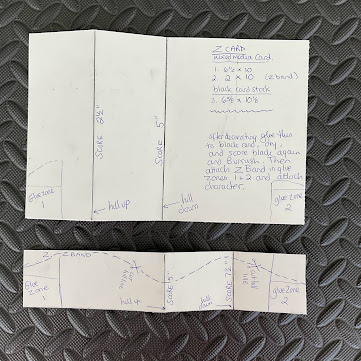 Z CARD
Mixed Media Card
1. 6½ x 10
2. 2 x 10 (Z band)
black card stock
3. 6⅝ x 10⅛
after decorating glue this
to black card, dry,
and score black again
and Burnish. Then
attach Z Band in glue
zones 1+2 and attach
character.
SCORE 2½"
SCORE 5"
hill up
hill down
Glue Zone
1
Glue Zone
2
Z BAND
hill up
SCORE 5"
hill
down
SCORE 7½"
Glue
Zone
1
Glue Zone
2